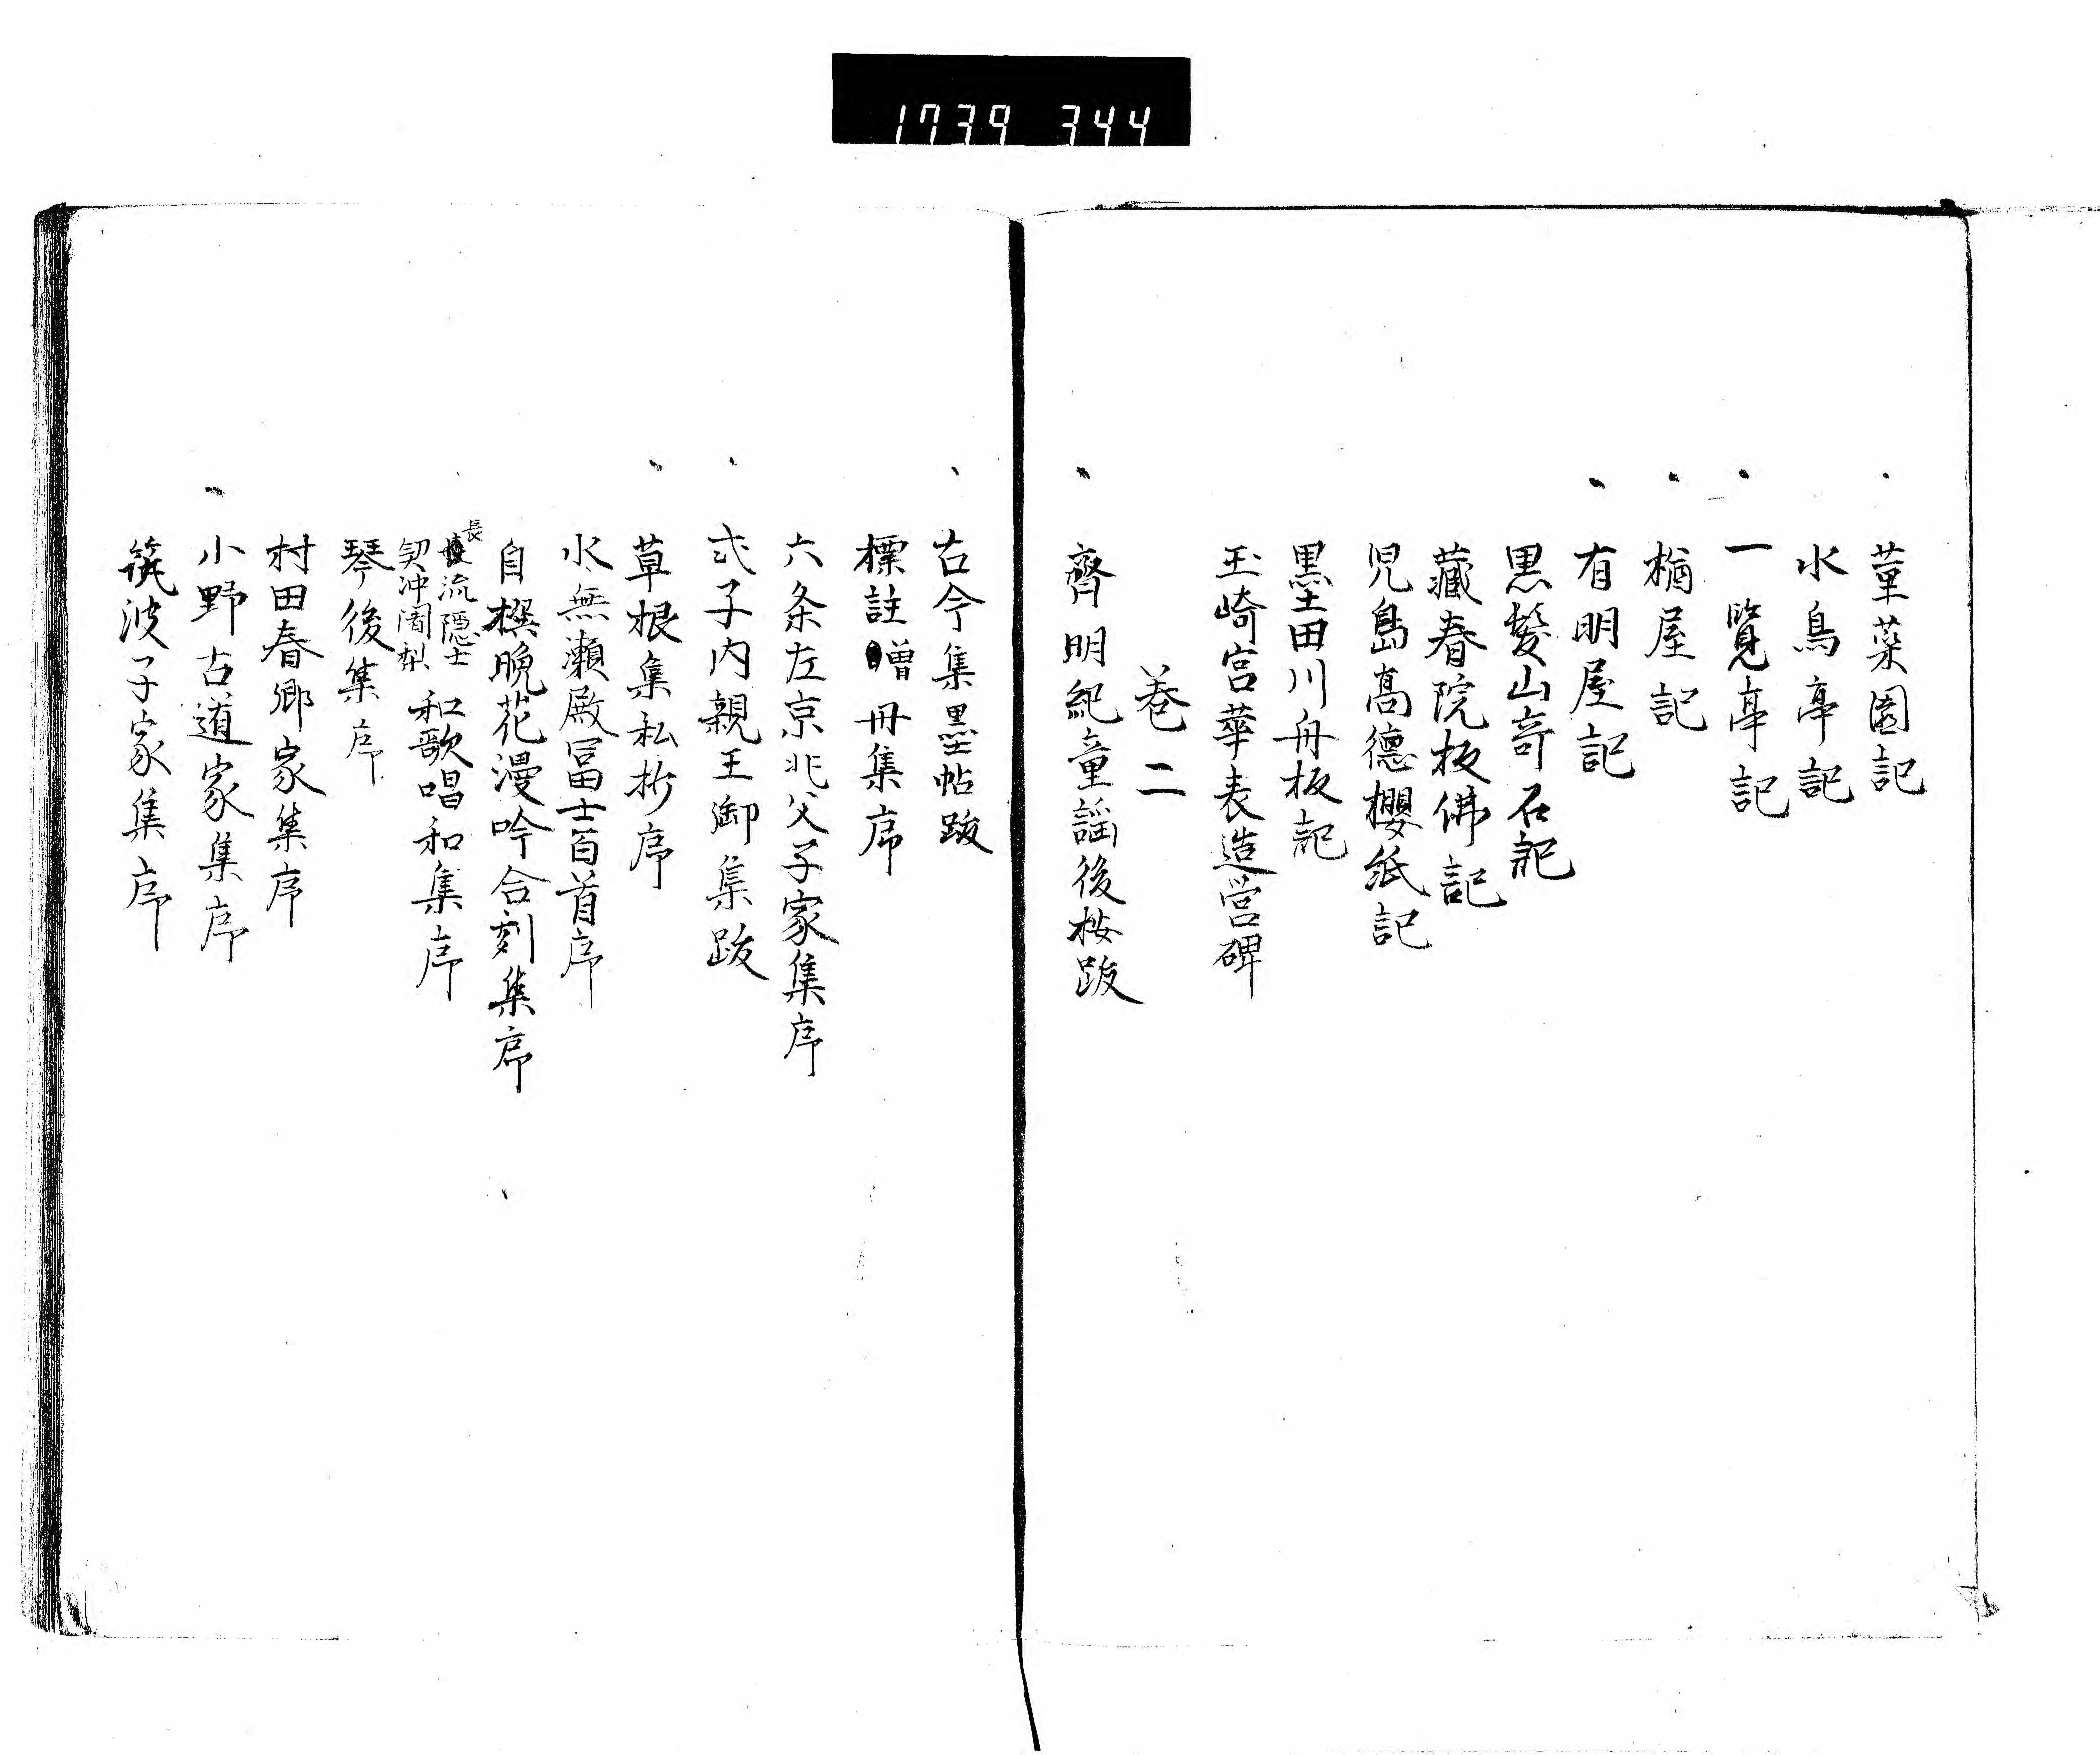 1739 344
菫菜園記
水鳥亭記
一覧亭記
楢屋記
有明屋記
黒髪山奇石記
藏春院板佛記
児島高德櫻紙記
墨田川舟板記
玉崎宮華表造営碑
巻二
齊明紀童謡後按跋
古今集墨帖跋
標註曽丹集序
六条左京兆父子家集序
式子内親王御集跋
草根集私抄序
水無瀬殿冨士百首序
自撰晩花漫吟合刻集序
長流隠士契冲闍梨和歌唱和集序
琴後集序
村田春郷家集序
小野古道家集序
筑波子家集序